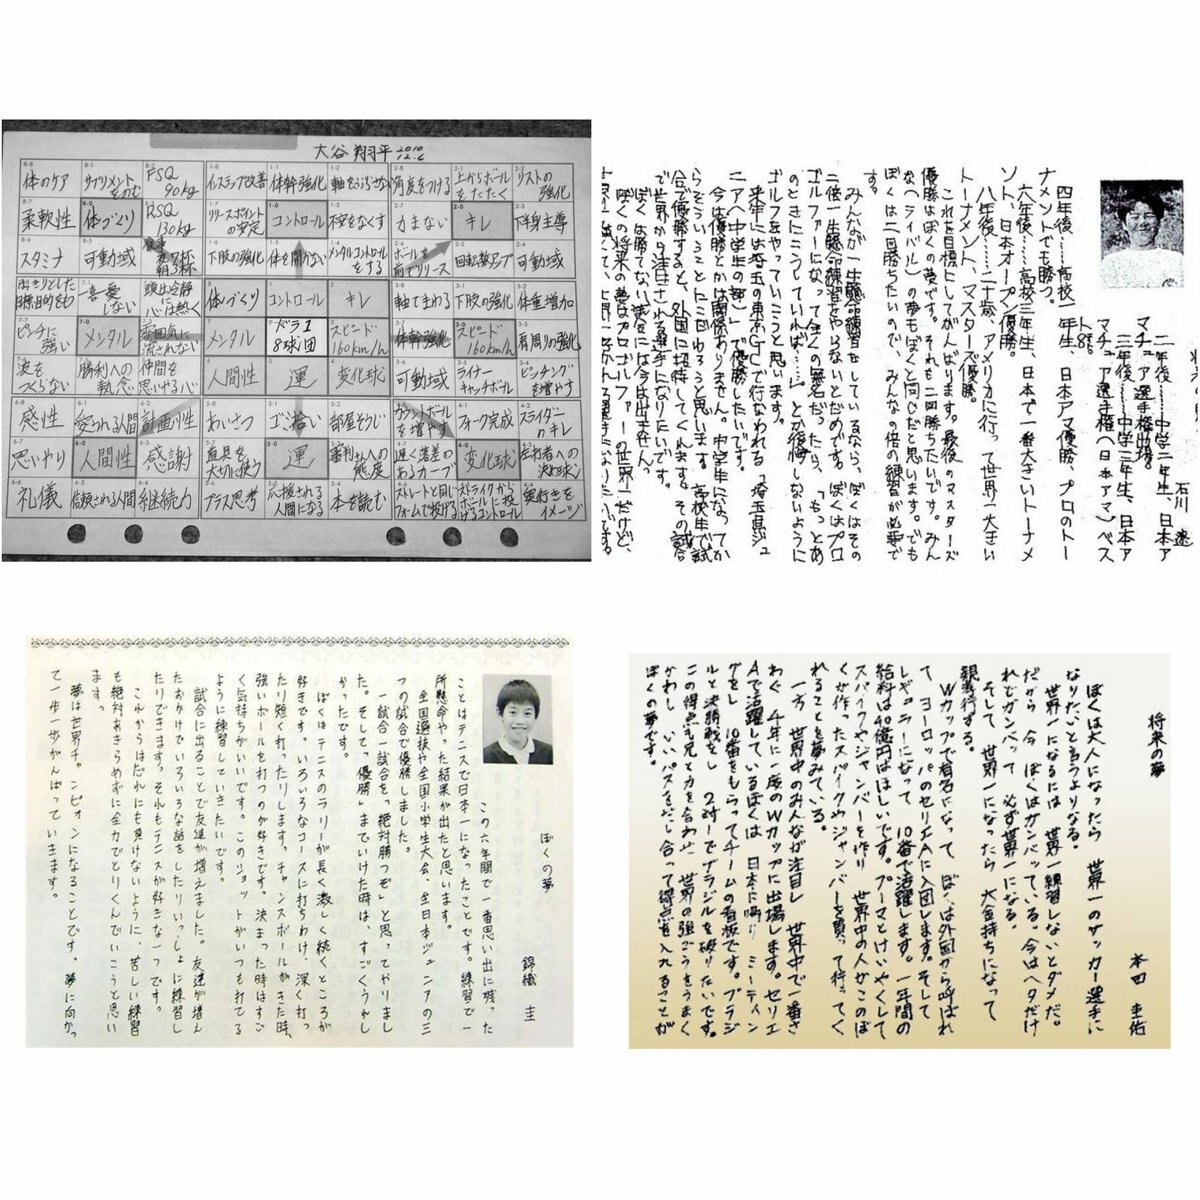 大谷翔平 2010 12.6
8-8 体のケア 8-1 サプリメントをのむ 8-2 FSQ 90kg 1-8 インステップ改善 1-1 体幹強化 1-2 軸をぶらさない 2-8 角度をつける 2-1 上からボールをたたく 2-2 リストの強化
8-7 柔軟性 体づくり RSQ 130kg リリースポイントの安定 コントロール 不安をなくす 力まない キレ 下半身主導
8-6 スタミナ 可動域 食事 夜7杯 朝3杯 下肢の強化 体を開かない メンタルコントロールをする ボールを前でリリース 回転数アップ 可動域
はっきりとした目標、目的をもつ 一喜一憂しない 頭は冷静に心は熱く 体づくり コントロール キレ 軸でまわる 下肢の強化 体重増加
ピンチに強い メンタル 雰囲気に流されない メンタル ドラ1 8球団 スピード160km/h 体幹強化 スピード160km/h 肩周りの強化
波をつくらない 勝利への執念 仲間を思いやる心 人間性 運 変化球 可動域 ライナーキャッチボール ピッチングを増やす
感性 愛される人間 計画性 あいさつ ゴミ拾い 部屋そうじ カウントボールを増やす フォーク完成 スライダーのキレ
思いやり 人間性 感謝 道具を大切に使う 運 審判さんへの態度 遅く落差のあるカーブ 変化球 左打者への決め球
礼儀 信頼される人間 継続力 プラス思考 応援される人間になる 本を読む ストレートと同じフォームで投げる ストライクからボールに投げるコントロール 奥行きをイメージ
石川 遼
二年後……中学二年生、日本アマチュア選手権出場。
三年後……中学三年生、日本アマチュア選手権(日本アマ)ベスト8。
四年後……高校一年生、日本アマ優勝、プロのトーナメントでも勝つ。
六年後……高校三年生、日本で一番大きいトーナメント、日本オープン優勝。
八年後……二十歳、アメリカに行って世界一大きいトーナメント、マスターズ優勝。
これを目標にしてがんばります。最後のマスターズ
優勝はぼくの夢です。それも二回勝ちたいです。みん
な(ライバル)の夢もぼくと同じだと思います。でも
ぼくは二回勝ちたいので、みんなの倍の練習が必要で
す。
みんなが一生懸命練習をしているなら、ぼくはその
二倍、一生懸命練習をやらないとだめです。ぼくはプロ
ゴルファーになって全くの無名だったら、「もっとあ
のときにこうしていれば……」とか後悔しないように
ゴルフをやっていこうと思います。
来年には埼玉の東京GCで行なわれる「埼玉県ジュ
ニア(中学生の部)」で優勝したいです。
今は優勝とかは関係ありません。中学生になってか
らそういうことにこだわろうと思います。高校生で試
合で優勝すると、外国に招待してくれます。その試合
で世界から注目される選手になりたいです。
ぼくは勝てない試合には今は出ません。
ぼくの将来の夢はプロゴルファーの世界一だけど、
ぼくの夢
錦織 圭
この六年間で一番思い出に残った
ことはテニスで日本一になったことです。練習で一
所懸命やった結果が出たと思います。
全国選抜や全国小学生大会、全日本ジュニアの三
つの試合で優勝しました。
一試合一試合を「絶対勝つぞ」と思ってやりまし
た。そして、優勝までいけた時は、すごくうれし
かったです。
ぼくはテニスのラリーが長く激しく続くところが
好きです。いろいろなコースに打ちわけ、深く打っ
たり短く打ったりします。チャンスボールがきた時、
強いボールを打つのが好きです。決まった時はすご
く気持ちがいいです。このショットがいつも打てる
ように練習していきたいです。
試合に出ることで友達が増えました。友達が増え
たおかげでいろいろな話をしたりいっしょに練習し
たりできます。それもテニスが好きな一つです。
これからはだれにも負けないように、苦しい練習
も絶対あきらめずに全力でとりくんでいこうと思い
ます。
夢は世界チャンピオンになることです。夢に向かっ
て一歩一歩がんばっていきます。
将来の夢
本田 圭佑
ぼくは大人になったら 世界一のサッカー選手に
なりたいと言うよりなる。
世界一になるには 世界一練習しないとダメだ。
だから 今 ぼくはガンバッている。今はヘタだけ
れどガンバって 必ず世界一になる。
そして 世界一になったら 大金持ちになって
親孝行する。
Wカップで有名になって ぼくは外国から呼ばれ
て ヨーロッパのセリエAに入団します。そして
レギュラーになって 10番で活躍します。一年間の
給料は40億円はほしいです。プーマとけいやくして
スパイクやジャンバーを作り 世界中の人がこのぼ
くが作ったスパイクやジャンバーを買って行ってく
れることを夢みている。
一方 世界中のみんなが注目し 世界中で一番さ
わぐ 4年に一度のWカップに出場します。セリエ
Aで活躍しているぼくは 日本に帰り ミーティン
グをし 10番をもらってチームの看板です。ブラジ
ルと決勝戦をし 2対1でブラジルを破りたいです。
この得点も兄と力を合わせ 世界の強ごうをうまく
かわし いいパスをだし合って得点を入れることが
ぼくの夢です。